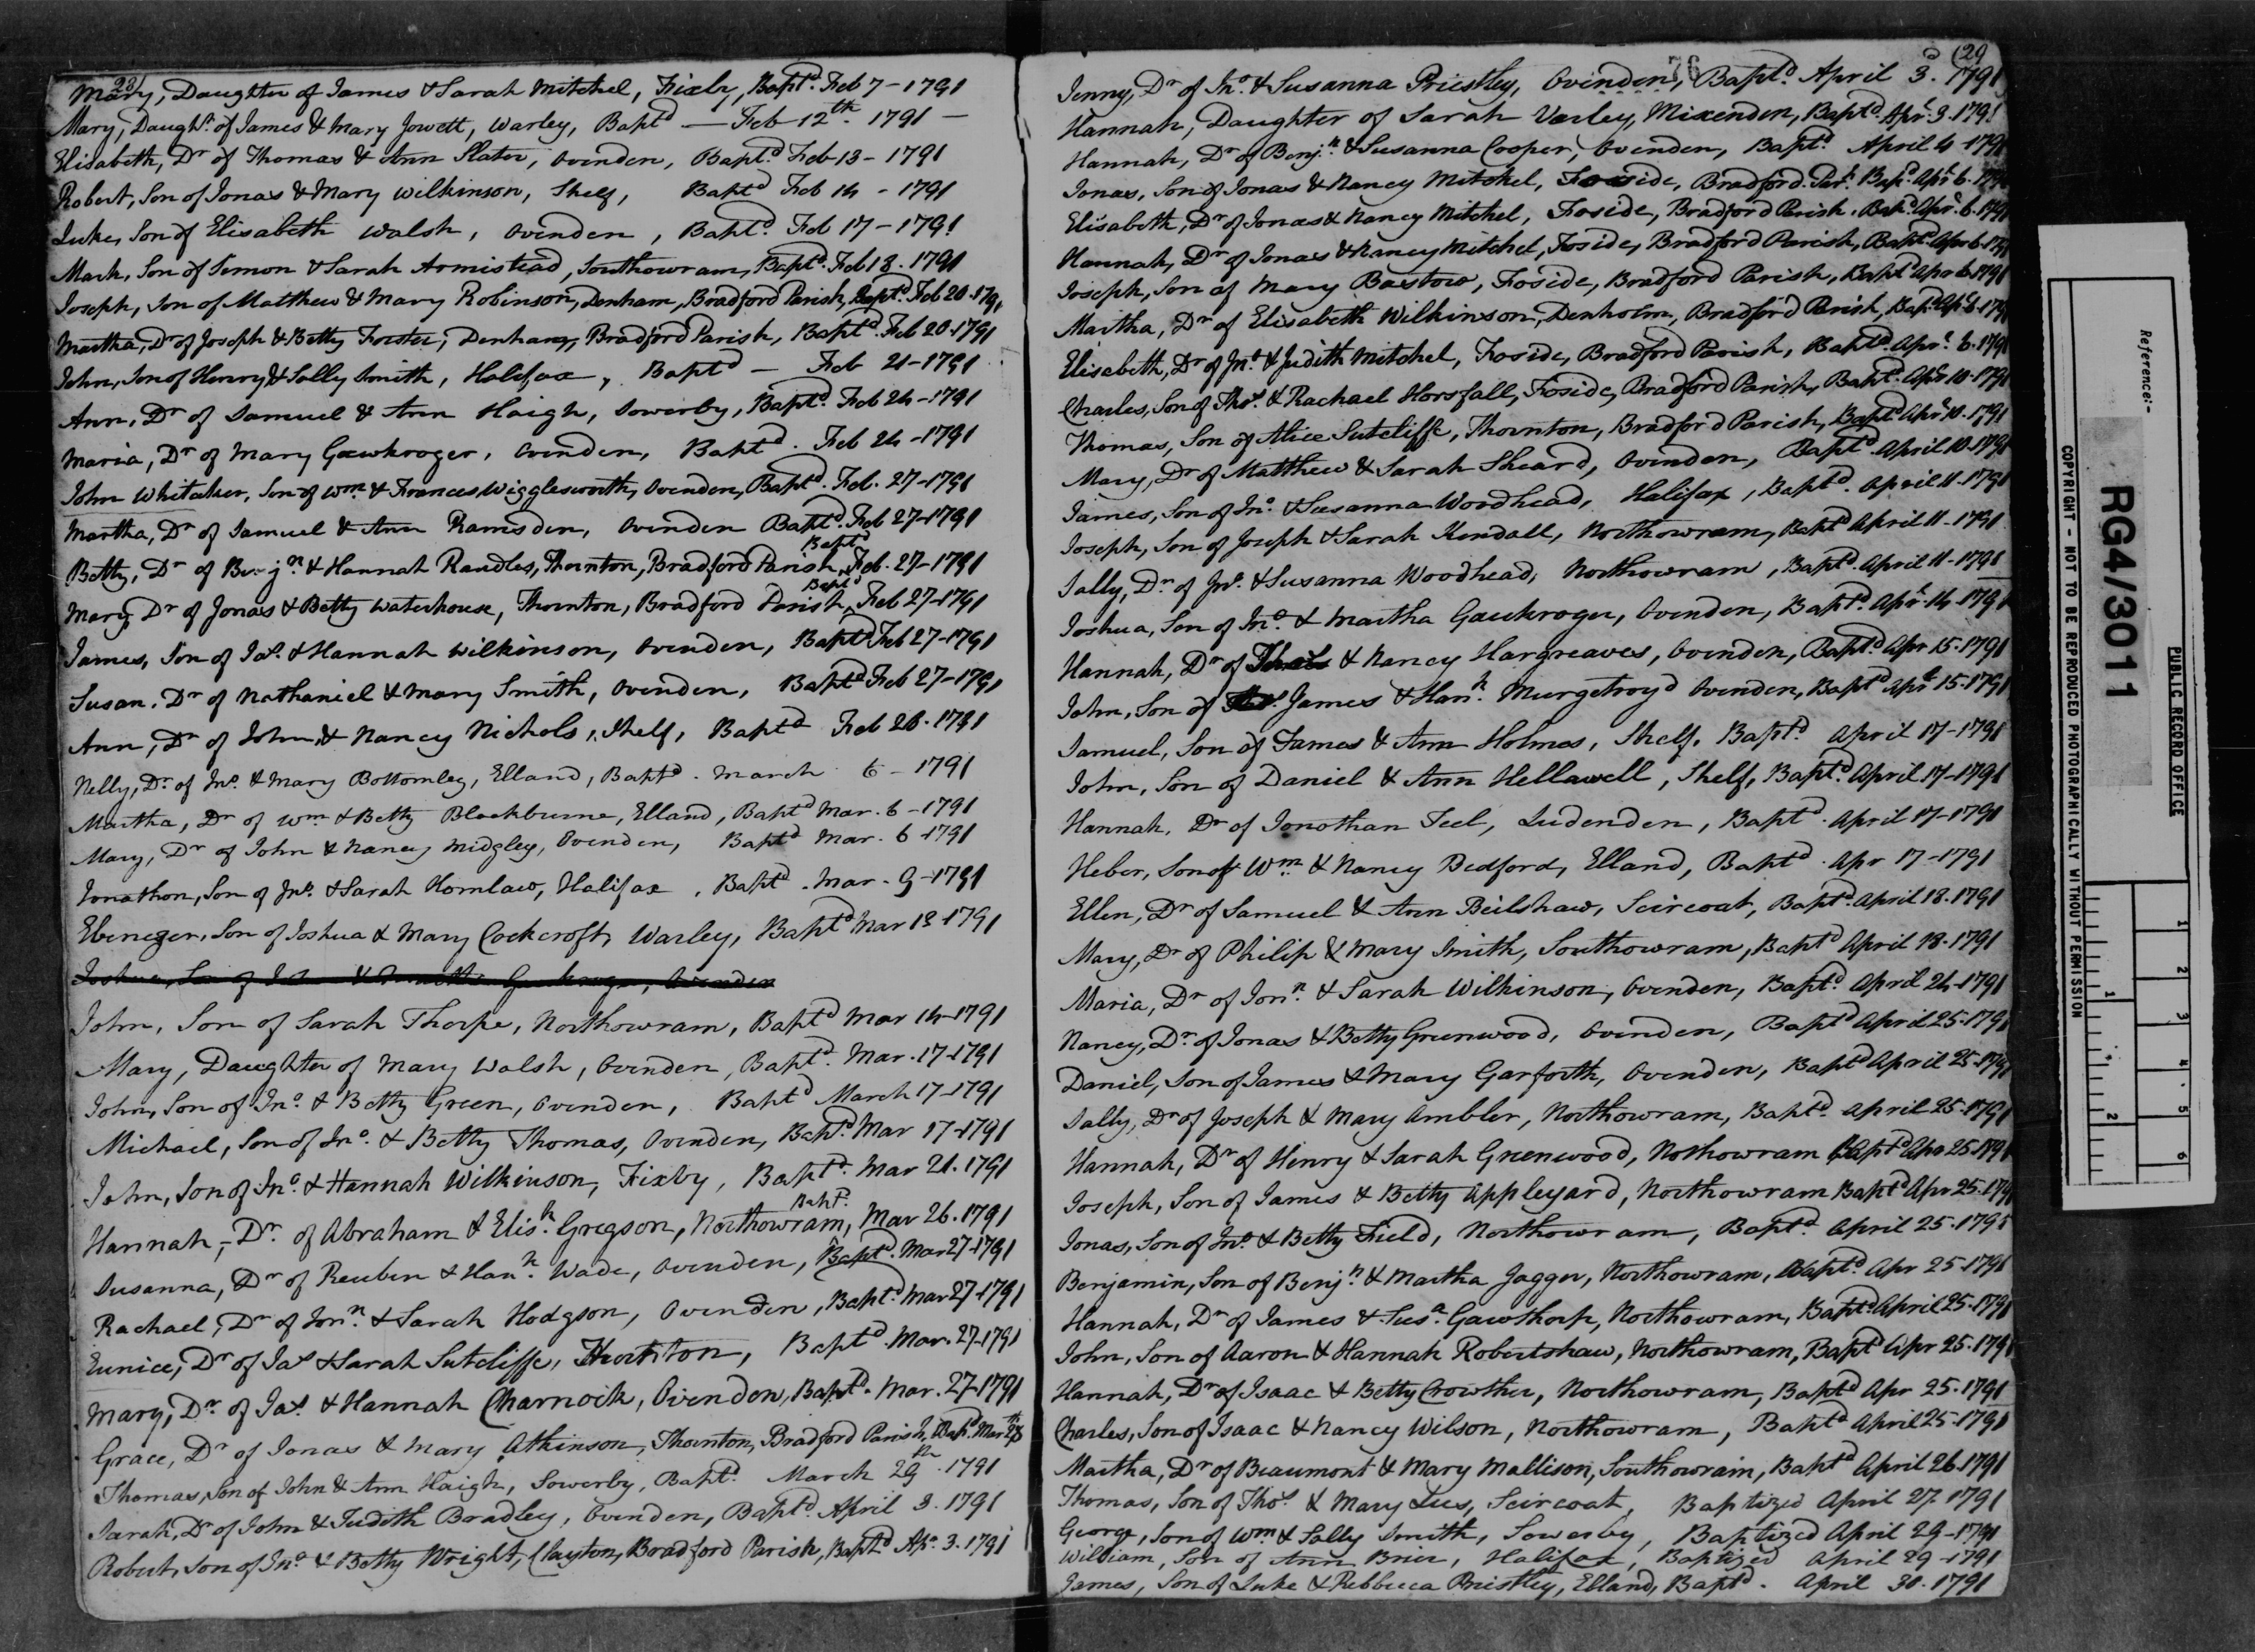 28)
Mary, Daughter of James & Sarah Mitchel, Fixby, Bapt.d Feb 7 - 1791
Mary, Daught.r of James & Mary Jowett, Warley, Bapt.d — Feb 12th 1791 —
Elisabeth, D.r of Thomas & Ann Slator, Ovenden, Bapt.d Feb 13 - 1791
Robert, Son of Jonas & Mary Wilkinson, Shelf, Bapt.d Feb 14 - 1791
Luke, Son of Elisabeth Walsh, Ovenden, Bapt.d Feb 17 - 1791
Mark, Son of Simon & Sarah Armistead, Southowram, Bapt.d Feb 18. 1791
Joseph, Son of Matthew & Mary Robinson, Denham, Bradford Parish, Bapt.d Feb 20. 179
Martha, D.r of Joseph & Betty Forster, Denham, Bradford Parish, Bapt.d Feb 20-1791
John, Son of Henry & Sally Smith, Halifax, Bapt.d — Feb 21-1791
Ann, D.r of Samuel & Ann Haigh, Sowerby, Bapt.d Feb 24-1791
Maria, D.r of Mary Gawkroger, Ovenden, Bapt.d Feb 24-1791
John Whitaker, Son of W.m & Frances Wigglesworth, Ovenden, Bapt.d Feb. 27-1791
Martha, D.r of Samuel & Ann Ramsden, Ovenden Bapt.d Feb 27-1791
Betty, D.r of Benj.n & Hannah Randles, Thornton, Bradford Parish, Bapt.d Feb. 27-1791
Mary, D.r of Jonas & Betty Waterhouse, Thornton, Bradford Parish, Bapt.d Feb 27-1791
James, Son of Ja.s & Hannah Wilkinson, Ovenden, Bapt.d Feb 27-1791
Susan, D.r of Nathaniel & Mary Smith, Ovenden, Bapt.d Feb 27-1791
Ann, D.r of John & Nancy Nichols, Shelf, Bapt.d Feb 28. 1791
Nelly, D.r of Jn.o & Mary Bottomley, Elland, Bapt.d March 6 - 1791
Martha, D.r of W.m & Betty Blackburne, Elland, Bapt.d Mar. 6-1791
Mary, D.r of John & Nancy Midgley, Ovenden, Bapt.d Mar. 6-1791
Jonathon, Son of Jn.o & Sarah Hornlaw, Halifax, Bapt.d Mar. 9-1791
Ebenezer, Son of Joshua & Mary Cockcroft, Warley, Bapt.d Mar 13-1791
Joshua, Son of Jn.o & Martha Gawkroger, Ovenden
John, Son of Sarah Thorpe, Northowram, Bapt.d Mar 14-1791
Mary, Daughter of Mary Walsh, Ovenden, Bapt.d Mar. 17-1791
John, Son of Jn.o & Betty Green, Ovenden, Bapt.d March 17-1791
Michael, Son of Jn.o & Betty Thomas, Ovenden, Bapt.d Mar 17-1791
John, Son of Jn.o & Hannah Wilkinson, Fixby, Bapt.d Mar 21. 1791
Hannah, D.r of Abraham & Elis.h Gregson, Northowram, Bapt.d Mar 26. 1791
Susanna, D.r of Reuben & Han.h Wade, Ovenden, Bapt.d Mar 27-1791
Rachael, D.r of Jon.n & Sarah Hodgson, Ovenden, Bapt.d Mar 27-1791
Eunice, D.r of Ja.s & Sarah Sutcliffe, Thornton, Bapt.d Mar. 27-1791
Mary, D.r of Ja.s & Hannah Charnock, Ovenden, Bapt.d Mar. 27-1791
Grace, D.r of Jonas & Mary Atkinson, Thornton, Bradford Parish, Bap.d Mar
Thomas, Son of John & Ann Haigh, Sowerby, Bapt.d March 29th. 1791
Sarah, D.r of John & Judith Bradley, Ovenden, Bapt.d April 3. 1791
Robert, Son of Jn.o & Betty Wright, Clayton, Bradford Parish, Bapt.d Ap.r 3. 1791
76
(29
Jenny, D.r of Jn.o & Susanna Priestley, Ovinden, Bapt.d April 3. 1791
Hannah, Daughter of Sarah Varley, Mixenden, Bapt.d Apr. 3. 1791
Hannah, D.r of Benj.n & Susanna Cooper, Ovenden, Bapt.d April 4-1791
Jonas, Son of Jonas & Nancy Mitchel, Foxside, Bradford Par.h Bap.d Apr. 6. 1791
Elisabeth, D.r of Jonas & Nancy Mitchel, Foside, Bradford Parish, Bap.d Apr. 6. 1791
Hannah, D.r of Jonas & Nancy Mitchel, Foside, Bradford Parish, Bapt.d Apr 6-179
Joseph, Son of Mary Bastow, Foside, Bradford Parish, Bapt.d Apr 6-1791
Martha, D.r of Elisabeth Wilkinson, Denholm, Bradford Parish, Bap.d Apr 6-179
Elisebeth, D.r of Jn.o & Judith Mitchel, Foside, Bradford Parish, Bapt.d Apr. 6. 1791
Charles, Son of Tho.s & Rachael Horsfall, Foside, Bradford Parish, Bapt.d Apr 10-1791
Thomas, Son of Alice Sutcliffe, Thornton, Bradford Parish, Bapt.d Apr 10. 1791
Mary, D.r of Matthew & Sarah Sheard, Ovinden, Bapt.d April 10-1791
James, Son of Jn.o & Susanna Woodhead, Halifax, Bapt.d April 11. 1791
Joseph, Son of Joseph & Sarah Kendall, Northowram, Bapt.d April 11-1791
Sally, D.r of Jn.o & Susanna Woodhead, Northowram, Bapt.d April 11-1791
Joshua, Son of Jn.o & Martha Gawkroger, Ovenden, Bapt.d Apr. 14-1791
Hannah, D.r of & Nancy Hargreaves, Ovenden, Bapt.d Apr 15-1791
John, Son of Tho.s James & Han.h Murgetroyd Ovenden, Bapt.d Apr 15. 1791
Samuel, Son of James & Ann Holmes, Shelf, Bapt.d April 17-1791
John, Son of Daniel & Ann Hellawell, Shelf, Bapt.d April 17-1791
Hannah, D.r of Jonothan Teel, Ludenden, Bapt.d April 17-1791
Heber, Son of W.m & Nancy Bedford, Elland, Bapt.d Apr 17-1791
Ellen, D.r of Samuel & Ann Beilshaw, Scircoat, Bapt.d April 18. 1791
Mary, D.r of Philip & Mary Smith, Southowram, Bapt.d April 18-1791
Maria, D.r of Jon.n & Sarah Wilkinson, Ovenden, Bapt.d April 24-1791
Nancy, D.r of Jonas & Betty Greenwood, Ovenden, Bapt.d April 25-1791
Daniel, Son of James & Mary Garforth, Ovenden, Bapt.d April 25-1791
Sally, D.r of Joseph & Mary Ambler, Northowram, Bapt.d April 25-1791
Hannah, D.r of Henry & Sarah Greenwood, Nothowram Bapt.d Apr 25-1791
Joseph, Son of James & Betty Appleyard, Northowram Bapt.d Apr 25-179
Jonas, Son of Jn.o & Betty Field, Northowram, Bapt.d April 25-1791
Benjamin, Son of Benj.n & Martha Jagger, Northowram, Bapt.d Apr 25-1791
Hannah, D.r of James & Sus.a Gawthorp, Northowram, Bapt.d April 25-1791
John, Son of Aaron & Hannah Robertshaw, Northowram, Bapt.d Apr 25-1791
Hannah, D.r of Isaac & Betty Crowther, Northowram, Bapt.d Apr 25-1791
Charles, Son of Isaac & Nancy Wilson, Northowram, Bapt.d April 25-1791
Martha, D.r of Beaumont & Mary Mallison, Southowram, Bapt.d April 26-1791
Thomas, Son of Tho.s & Mary Lees, Scircoat, Baptized April 27. 1791
George, Son of W.m & Sally Smith, Sowerby, Baptized April 29-1791
William, Son of Ann Brier, Halifax, Baptized April 29-1791
James, Son of Luke & Rebbecca Priestley, Elland, Bapt.d April 30. 1791
PUBLIC RECORD OFFICE
Reference:-
RG4/3011
COPYRIGHT - NOT TO BE REPRODUCED PHOTOGRAPHICALLY WITHOUT PERMISSION
1 2 3 4 5 6
1 2